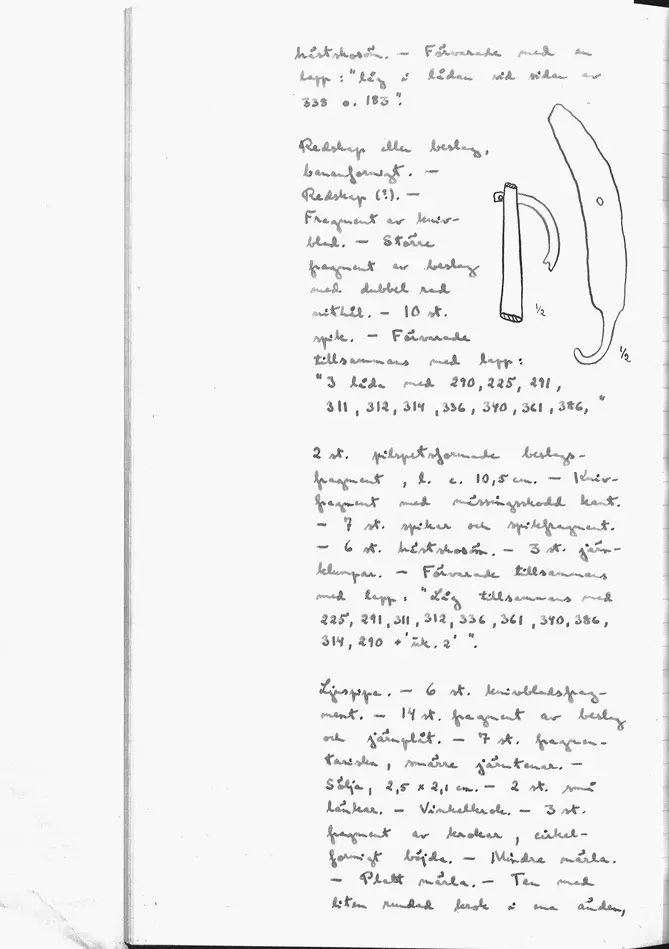 hästskosöm. – Förvarade med en
lapp: "låg i lådan vid sidan av
338 o. 183".
Redskap eller beslag,
bananformigt. –
Redskap (?). –
Fragment av kniv-
blad. – Större
fragment av beslag
med dubbel rad
nithål. – 10 st.
spik. – Förvarade
tillsammans med lapp:
"3 låda med 290, 225, 291,
311, 312, 314, 336, 340, 361, 386, "
1/2
1/2
2 st. pilspetsformade beslags-
fragment, l. c. 10,5 cm. – Kniv-
fragment med mässingsskodd kant.
– 7 st. spikar och spikfragment.
– 6 st. hästskosöm. – 3 st. järn-
klumpar. – Förvarade tillsammans
med lapp: "Låg tillsammans med
225, 291, 311, 312, 336, 361, 340, 386,
314, 290 + 'uk. 2' ".
Ljuspipa. – 6 st. knivbladsfrag-
ment. – 14 st. fragment av beslag
och järnplåt. – 7 st. fragmen-
tariska, smärre järntenar. –
Sölja, 2,5 x 2,1 cm. – 2 st. små
länkar. – Vinkelkrok. – 3 st.
fragment av krokar, cirkel-
formigt böjda. – Mindre märla.
– Platt märla. – Ten med
liten rundad krok i ena änden,